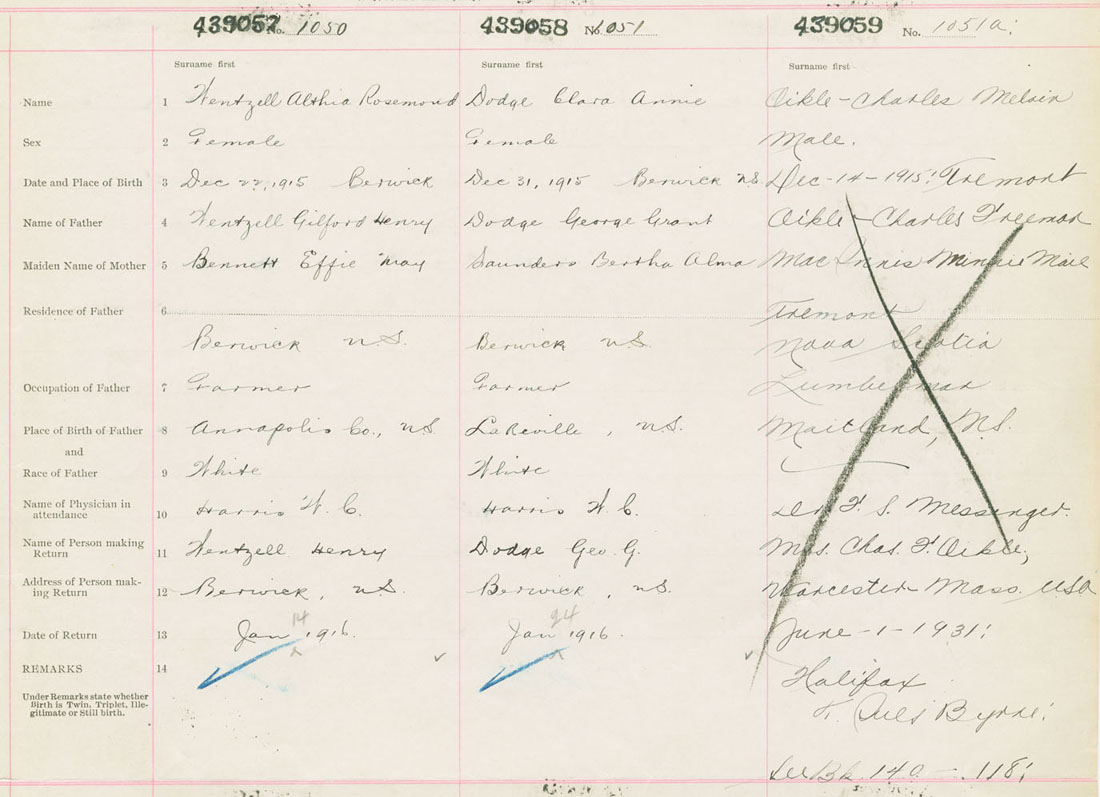 439057 No. 1050 439058 No. 1051 439059 No. 1051a.
Surname first Surname first Surname first
Name 1 Wentzell Althia Rosemond Dodge Clara Annie Oikle - Charles Melvin
Sex 2 Female Female Male.
Date and Place of Birth 3 Dec 22, 1915 Berwick Dec 31, 1915 Berwick N.S. Dec - 14 - 1915: Tremont
Name of Father 4 Wentzell Gilford Henry Dodge George Grant Oikle - Charles Freeman
Maiden Name of Mother 5 Bennett Effie May Saunders Bertha Alma Mac Innis Minnie Mail
Residence of Father 6 Tremont
Berwick N.S. Berwick N.S. Nova Scotia
Occupation of Father 7 Farmer Farmer Lumberman
Place of Birth of Father 8 Annapolis Co., N.S. Lakeville, N.S. Maitland, N.S.
and
Race of Father 9 White White
Name of Physician in
attendance 10 Harris W. C. Harris W. C. Dr. F. S. Messenger.
Name of Person making
Return 11 Wentzell Henry Dodge Geo. G. Mrs. Chas. F. Oikle,
Address of Person mak-
ing Return 12 Berwick, N.S. Berwick, N.S. Worcester Mass. USA
14 24
Date of Return 13 Jan 1916. Jan 1916. June - 1 - 1931:
REMARKS 14 Halifax
Under Remarks state whether
Birth is Twin, Triplet, Ille-
gitimate or Still birth.
Byrne:
See Bk. 140 - 118: